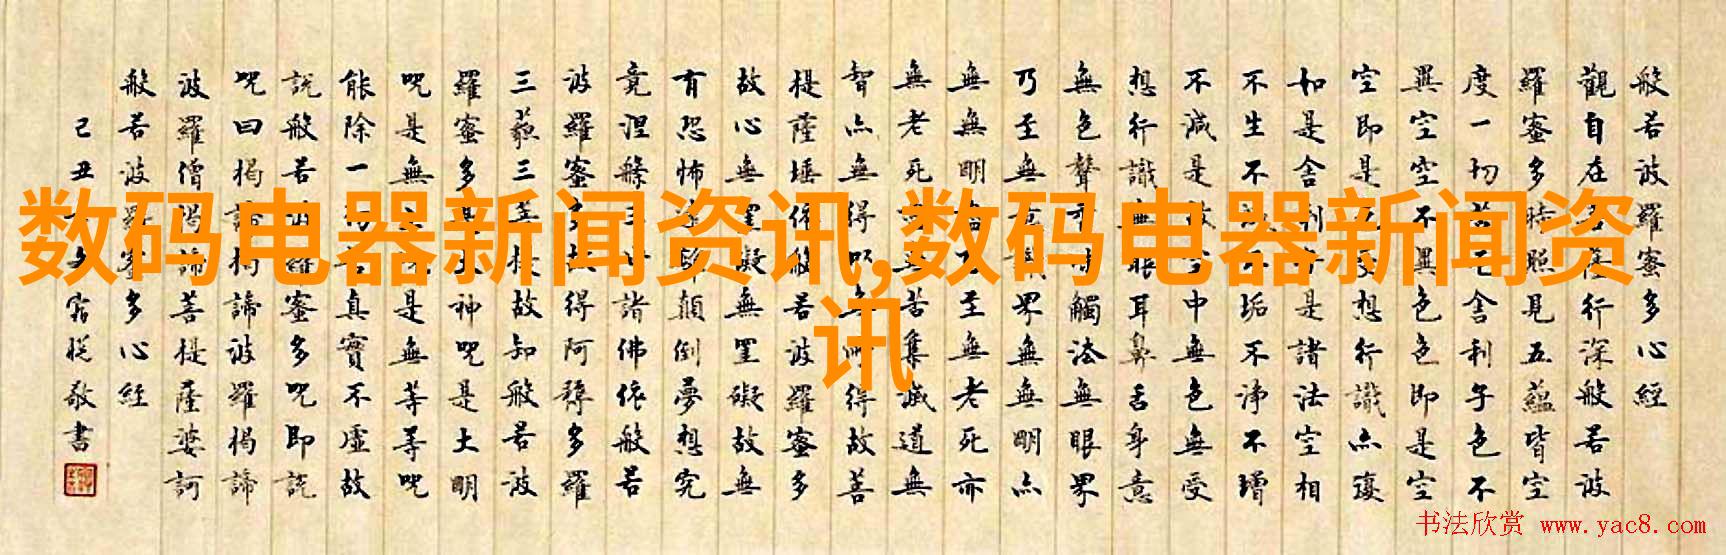 数码电器新闻资讯,数码电器新闻资
讯
般若波羅蜜多心經
觀自在菩薩行深般若波
羅蜜多時照見五蘊皆空
度一切苦厄舍利子色不
異空空不異色色即是空
空即是色受想行識亦復
如是舍利子是諸法空相
不生不滅不垢不淨不增
不減是故空中無色無受
想行識無眼耳鼻舌身意
無色聲香味觸法無眼界
乃至無意識界無無明亦
無無明盡乃至無老死亦
無老死盡無苦集滅道無
智亦無得以無所得故菩
提薩埵依般若波羅蜜多
故心無罣礙無罣礙故無
有恐怖遠離顛倒夢想究
竟涅槃三世諸佛依般若
波羅蜜多故得阿耨多羅
三藐三菩提故知般若波
羅蜜多是大神咒是大明
咒是無上咒是無等等咒
能除一切苦真實不虛故
說般若波羅蜜多咒即說
咒曰揭諦揭諦波羅揭諦
波羅僧揭諦菩提薩婆訶
般若波羅蜜多心經
己丑敬書
书法欣赏 www.yac8.com